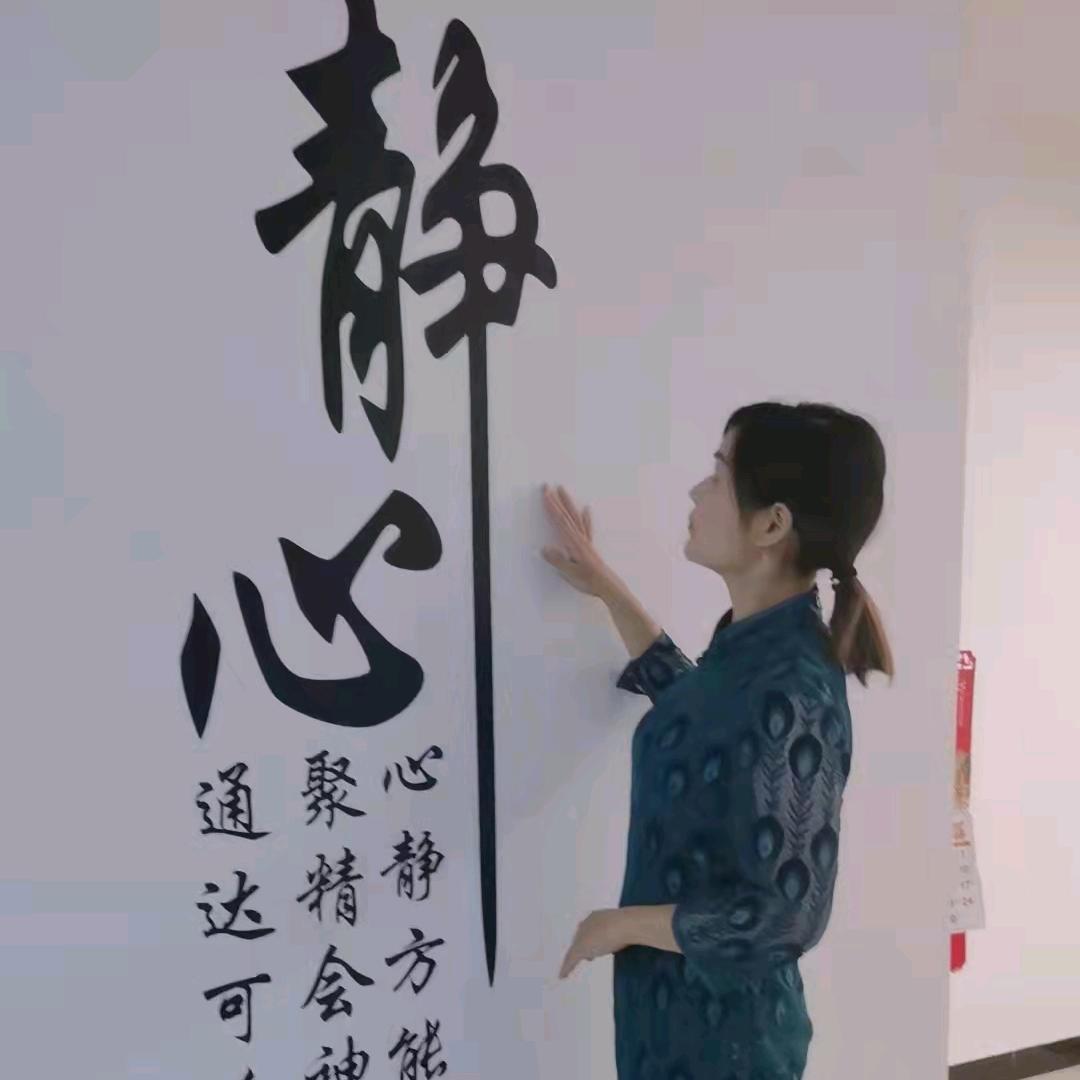 静心
心静方能
聚精会神
通达可